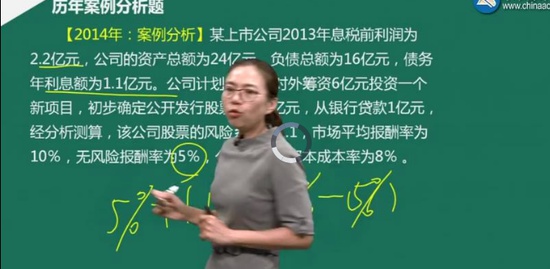 www.chinaac
历年案例分析题
【2014年:案例分析】某上市公司2013年息税前利润为
2.2亿元,公司的资产总额为24亿元,负债总额为16亿元,债务
年利息额为1.1亿元。公司计划 对外筹资6亿元投资一个
新项目,初步确定公开发行股票 亿元,从银行贷款1亿元,
经分析测算,该公司股票的风险 .1,市场平均报酬率为
10%,无风险报酬率为5%, 本成本率为8%。
5% -5%)